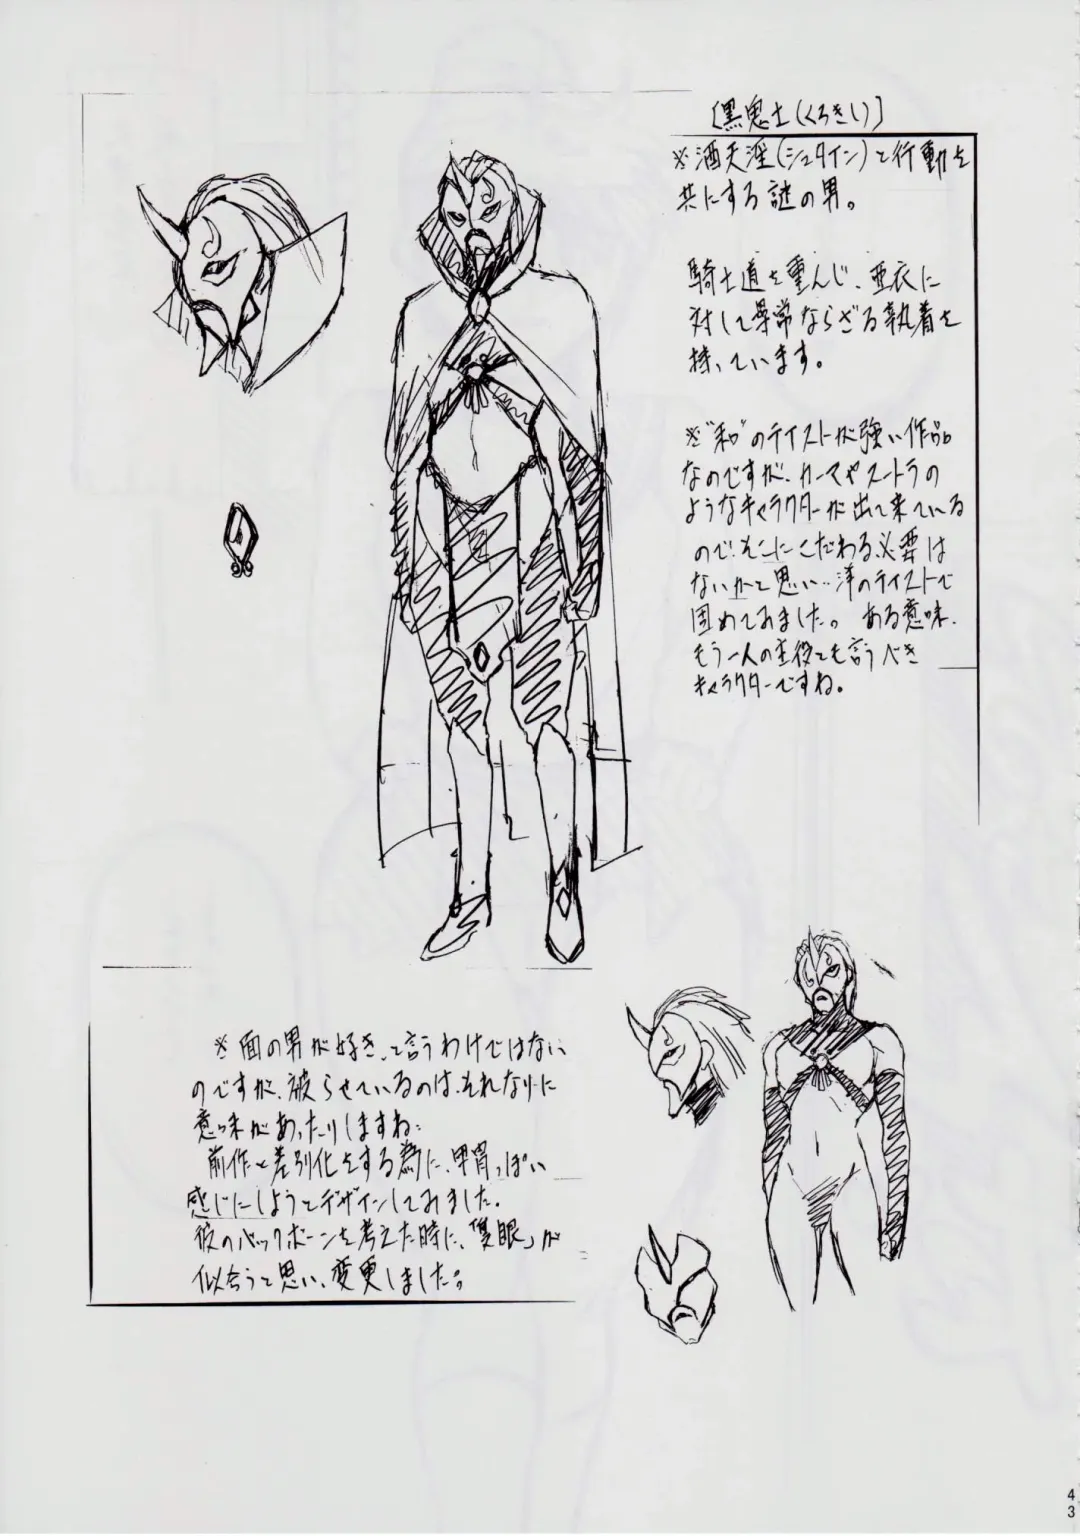 [黒鬼士(くろきし)]
※酒天淫(シュタイン)と行動を
共にする謎の男。
騎士道を重んじ、亜衣に
対して尋常ならざる執着を
持っています。
※"和"のテイストが強い作品
なのですが、カーマやスートラの
ようなキャラクターが出て来ている
ので、そこにこだわる必要は
ないかと思い…洋のテイストで
固めてみました。ある意味、
もう一人の主役とも言うべき
キャラクターですね。
※面の男が好き、と言うわけではない
のですが、被らせているのは、それなりに
意味があったりしますね。
前作と差別化をする為に、甲冑っぽい
感じにしようとデザインしてみました。
彼のバックボーンを考えた時に、「隻眼」が
似合うと思い、変更しました。
43